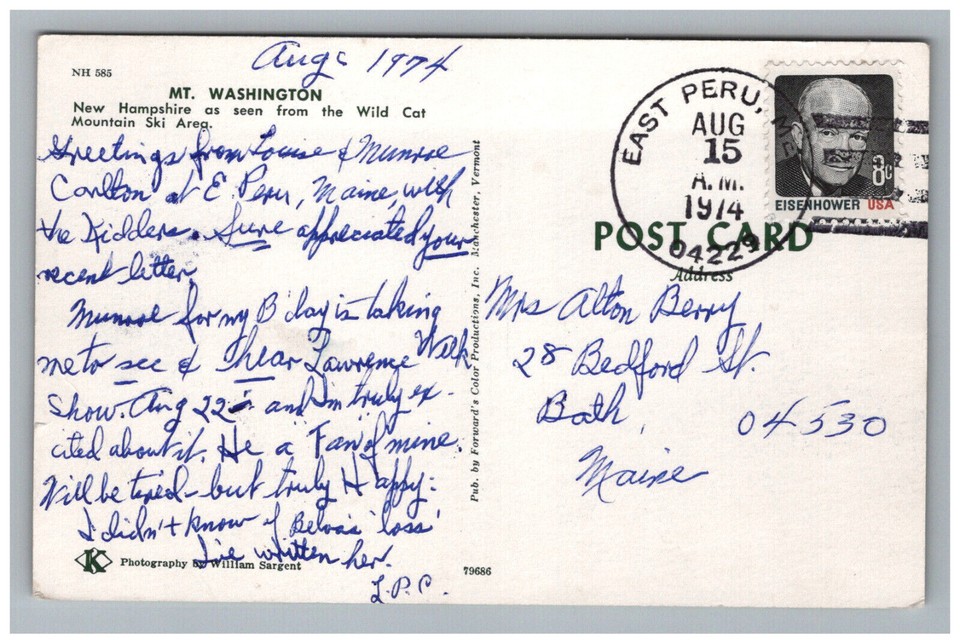 Aug. 1974
NH 585
MT. WASHINGTON
New Hampshire as seen from the Wild Cat
Mountain Ski Area.
Greetings from Louise & Munroe
Carlton at E. Peru, Maine, with
the Kidders. Sure appreciated your
recent letter
Munroe for my B'day is taking
me to see & hear Lawrence Welk
Show. Aug 22 - and I'm truly ex-
cited about it. He a Fan of mine.
Will be tired - but truly Happy:
I didn't know of Belva's 'loss'
I've written her.
L.P.C.
K
Photography by William Sargent
79686
Pub. by Forward's Color Productions, Inc. Manchester, Vermont
EAST PERU,
AUG
15
A.M.
1974
04229
8c
EISENHOWER USA
POST CARD
Address
Mrs Alton Berry
28 Bedford St.
Bath, 04530
Maine